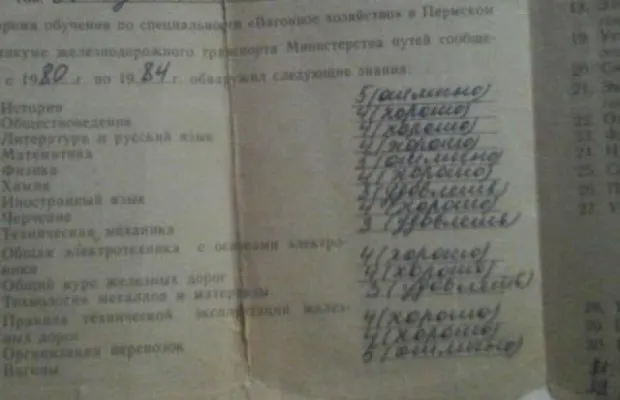 время обучения по специальности «Вагонное хозяйство» в Пермском
техникуме железнодорожного транспорта Министерства путей сообще-
с 1980 г. по 1984 г. обнаружил следующие знания:
История 5 (отлично)
Обществоведение 4 (хорошо)
Литература и русский язык 4 (хорошо)
Математика 4 (хорошо)
Физика 5 (отлично)
Химия 4 (хорошо)
Иностранный язык 3 (удовлетв)
Черчение 4 (хорошо)
Техническая механика 3 (удовлетв)
Общая электротехника с основами электро-
ники 4 (хорошо)
Общий курс железных дорог 4 (хорошо)
Технология металлов и материалы 3 (удовлетв)
Правила технической эксплуатации желез-
ных дорог 4 (хорошо)
Организация перевозок 4 (хорошо)
Вагоны 5 (отлично)
18.
19.
20.
21.
22.
23.
24.
25.
26.
27.